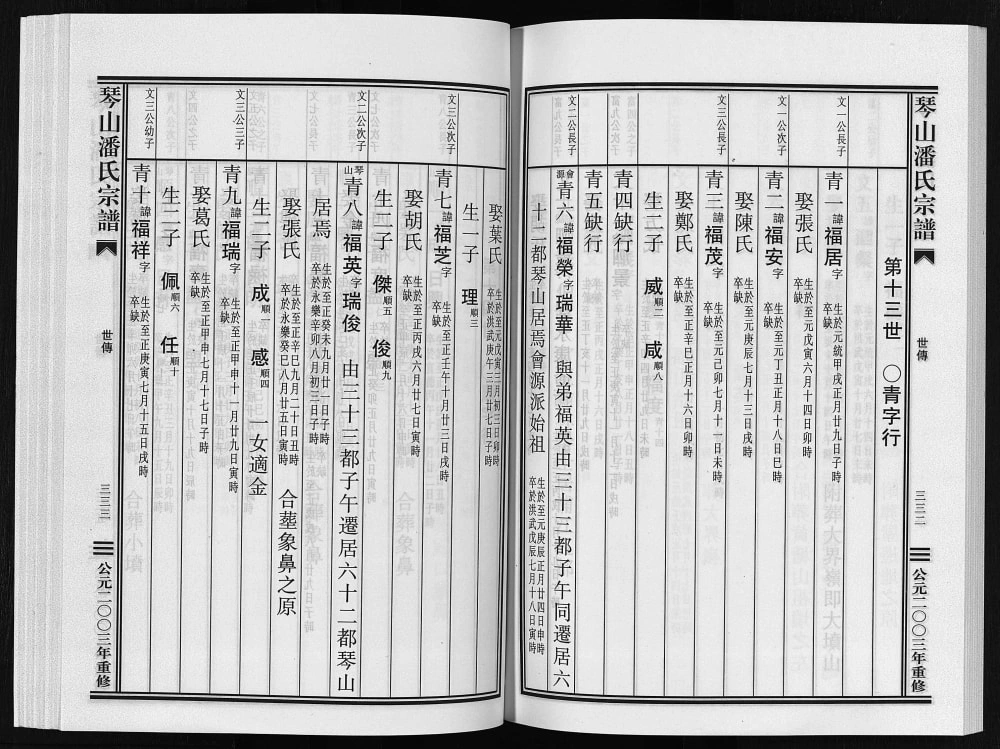 琴山潘氏宗譜
世傳
三三二
公元二〇〇三年重修
第十三世 〇青字行
文一公長子
青一諱福居字 生於至元統甲戌正月廿九日子時 卒缺
娶張氏 生於至元戊寅六月十四日卯時 卒缺
文一公次子
青二諱福安字 生於至元丁丑正月十八日巳時 卒缺
娶陳氏 生於至元庚辰七月十三日戌時 卒缺
文三公長子
青三諱福茂字 生於至元己卯七月十一日未時 卒缺
娶鄭氏 生於至正辛巳正月十六日卯時 卒缺
生二子 威順二 咸順八
富九公次子
青四缺行
青五缺行
文二公長子
會源青六諱福榮字瑞華 與弟福英由三十三都子午同遷居六
十二都琴山居焉會源派始祖 生於至元庚辰正月廿四日申時 卒於洪武戊辰七月十八日寅時
娶葉氏 生於至元戊寅三月初三日卯時 卒於洪武庚午三月廿七日子時
生一子 理順三
文三公次子
青七諱福芝字 生於至正壬午十月廿三日戌時 卒缺
娶胡氏 生於至正丙戌六月廿七日寅時 卒缺
生二子 傑順五 俊順九
文二公次子
琴山青八諱福英字瑞俊 由三十三都子午遷居六十二都琴山
居焉 生於至正癸未九月廿一日子時 卒於永樂辛卯八月初三日子時
娶張氏 生於至正辛巳九月二十日丑時 卒於永樂癸巳八月廿五日寅時 合塟象鼻之原
生二子 成順一 感順四 一女適金
文三公三子
青九諱福瑞字 生於至正甲申十一月廿九日寅時 卒缺
娶葛氏 生於至正甲申七月十七日子時 卒缺
生二子 佩順六 任順十
文三公幼子
青十諱福祥字 生於至正庚寅七月十五日戌時 卒缺
琴山潘氏宗譜
世傳
三三三
公元二〇〇三年重修